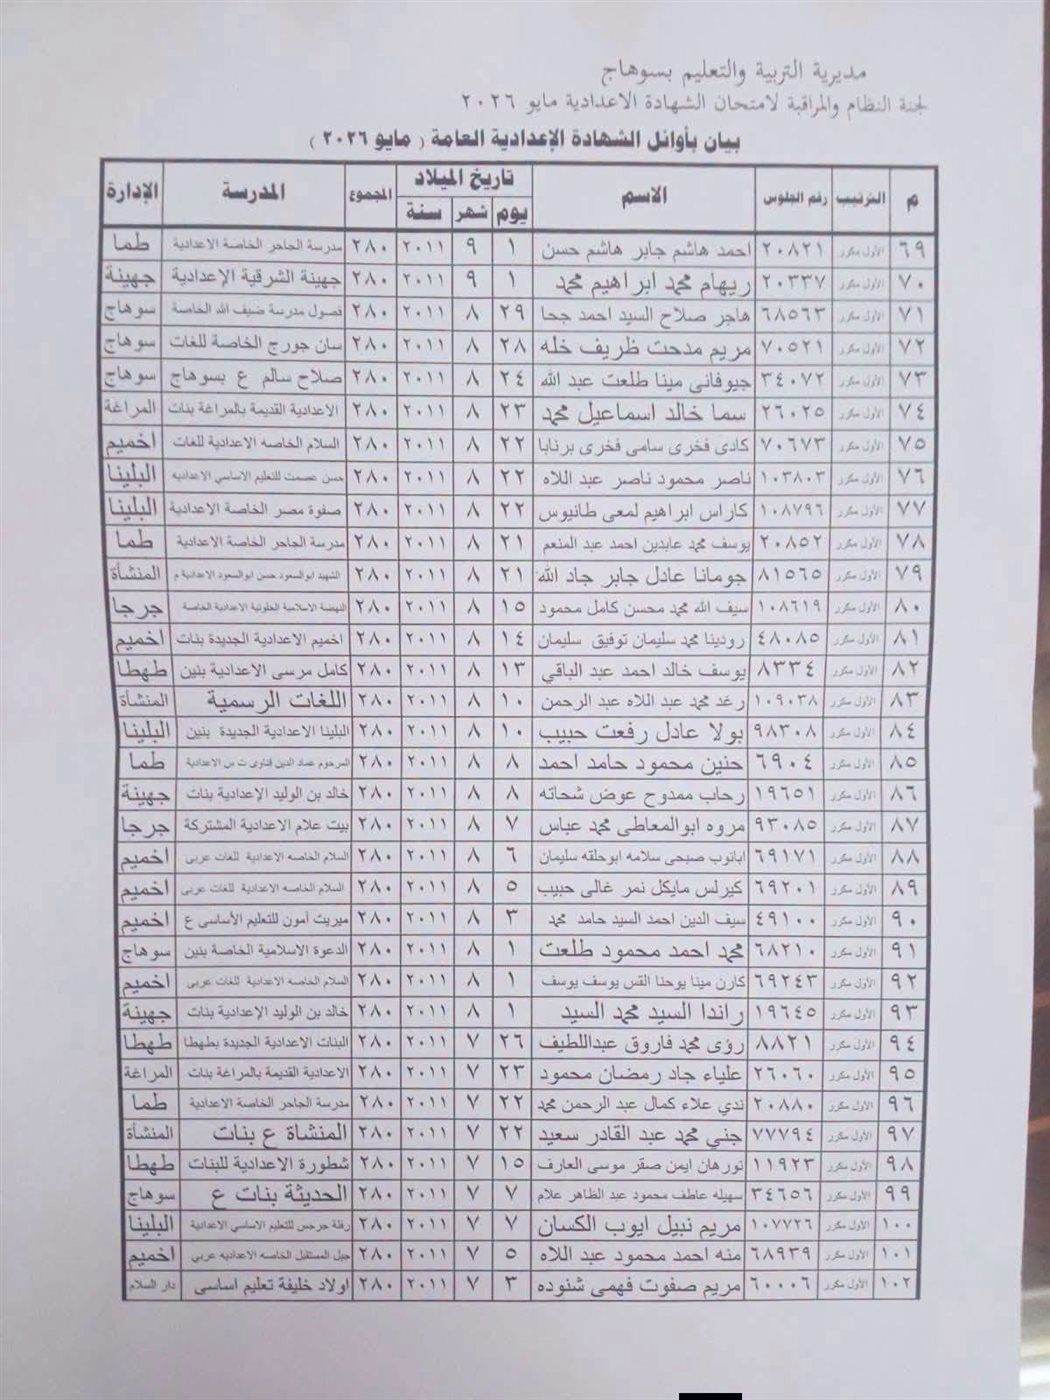 مديرية التربية والتعليم بسوهاج
لجنة النظام والمراقبة لامتحان الشهادة الاعدادية مايو ٢٠٢٦
بيان بأوائل الشهادة الإعدادية العامة ( مايو ٢٠٢٦ )
م الترتيب رقم الجلوس الاسم تاريخ الميلاد المجموع المدرسة الإدارة
يوم شهر سنة
٦٩ الأول مكرر ٢٠٨٢١ احمد هاشم جابر هاشم حسن ١ ٩ ٢٠١١ ٢٨٠ مدرسة الجاحر الخاصة الاعدادية طما
٧٠ الأول مكرر ٢٠٣٣٧ ريهام محمد ابراهيم محمد ١ ٩ ٢٠١١ ٢٨٠ جهينة الشرقية الإعدادية جهينة
٧١ الأول مكرر ٦٨٥٦٣ هاجر صلاح السيد احمد جحا ٢٩ ٨ ٢٠١١ ٢٨٠ فصول مدرسة ضيف الله الخاصة سوهاج
٧٢ الأول مكرر ٧٠٥٢١ مريم مدحت ظريف خله ٢٨ ٨ ٢٠١١ ٢٨٠ سان جورج الخاصة للغات سوهاج
٧٣ الأول مكرر ٣٤٠٧٢ جيوفانى مينا طلعت عبد الله ٢٤ ٨ ٢٠١١ ٢٨٠ صلاح سالم ع بسوهاج سوهاج
٧٤ الأول مكرر ٢٦٠٢٥ سما خالد اسماعيل محمد ٢٣ ٨ ٢٠١١ ٢٨٠ الاعدادية القديمة بالمراغة بنات المراغة
٧٥ الأول مكرر ٧٠٦٧٣ كادى فخرى سامى فخرى برنابا ٢٢ ٨ ٢٠١١ ٢٨٠ السلام الخاصه الاعدادية للغات اخميم
٧٦ الأول مكرر ١٠٣٨٠٣ ناصر محمود ناصر عبد اللاه ٢٢ ٨ ٢٠١١ ٢٨٠ حسن عصمت للتعليم الاساسي الاعداديه البلينا
٧٧ الأول مكرر ١٠٨٧٩٦ كاراس ابراهيم لمعى طانيوس ٢٢ ٨ ٢٠١١ ٢٨٠ صفوة مصر الخاصة الاعدادية البلينا
٧٨ الأول مكرر ٢٠٨٥٢ يوسف محمد عابدين احمد عبد المنعم ٢١ ٨ ٢٠١١ ٢٨٠ مدرسة الجاحر الخاصة الاعدادية طما
٧٩ الأول مكرر ٨١٥٦٥ جومانا عادل جابر جاد الله ٢١ ٨ ٢٠١١ ٢٨٠ الشهيد ابوالسعود حسن ابوالسعود الاعدادية م المنشأة
٨٠ الأول مكرر ١٠٨٦١٩ سيف الله محمد محسن كامل محمود ١٥ ٨ ٢٠١١ ٢٨٠ النهضة الاسلامية الخلوتية الاعدادية الخاصة جرجا
٨١ الأول مكرر ٤٨٠٨٥ رودينا محمد سليمان توفيق سليمان ١٤ ٨ ٢٠١١ ٢٨٠ اخميم الاعدادية الجديدة بنات اخميم
٨٢ الأول مكرر ٨٣٣٤ يوسف خالد احمد عبد الباقي ١٣ ٨ ٢٠١١ ٢٨٠ كامل مرسى الاعدادية بنين طهطا
٨٣ الأول مكرر ١٠٩٠٣٨ رغد محمد عبد اللاه عبد الرحمن ١٠ ٨ ٢٠١١ ٢٨٠ اللغات الرسمية المنشاة
٨٤ الأول مكرر ٩٨٣٠٨ بولا عادل رفعت حبيب ١٠ ٨ ٢٠١١ ٢٨٠ البلينا الاعدادية الجديدة بنين البلينا
٨٥ الأول مكرر ٦٩٠٤ حنين محمود حامد احمد ٨ ٨ ٢٠١١ ٢٨٠ المرحوم عماد الدين قناوى ت س الاعدادية طما
٨٦ الأول مكرر ١٩٦٥١ رحاب ممدوح عوض شحاته ٨ ٨ ٢٠١١ ٢٨٠ خالد بن الوليد الإعدادية بنات جهينة
٨٧ الأول مكرر ٩٣٠٨٥ مروه ابوالمعاطى محمد عباس ٧ ٨ ٢٠١١ ٢٨٠ بيت علام الاعدادية المشتركة جرجا
٨٨ الأول مكرر ٦٩١٧١ ابانوب صبحى سلامه ابوحلقه سليمان ٦ ٨ ٢٠١١ ٢٨٠ السلام الخاصه الاعدادية للغات عربى اخميم
٨٩ الأول مكرر ٦٩٢٠١ كيرلس مايكل نمر غالى حبيب ٥ ٨ ٢٠١١ ٢٨٠ السلام الخاصه الاعدادية للغات عربى اخميم
٩٠ الأول مكرر ٤٩١٠٠ سيف الدين احمد السيد حامد محمد ٣ ٨ ٢٠١١ ٢٨٠ ميريت آمون للتعليم الأساسى ع اخميم
٩١ الأول مكرر ٦٨٢١٠ محمد احمد محمود طلعت ١ ٨ ٢٠١١ ٢٨٠ الدعوة الاسلامية الخاصة بنين سوهاج
٩٢ الأول مكرر ٦٩٢٤٣ كارن مينا يوحنا القس يوسف يوسف ١ ٨ ٢٠١١ ٢٨٠ السلام الخاصه الاعدادية للغات عربى اخميم
٩٣ الأول مكرر ١٩٦٤٥ راندا السيد محمد السيد ١ ٨ ٢٠١١ ٢٨٠ خالد بن الوليد الإعدادية بنات جهينة
٩٤ الأول مكرر ٨٨٢١ رؤى محمد فاروق عبداللطيف ٢٦ ٧ ٢٠١١ ٢٨٠ البنات الاعدادية الجديدة بطهطا طهطا
٩٥ الأول مكرر ٢٦٠٦٠ علياء جاد رمضان محمود ٢٣ ٧ ٢٠١١ ٢٨٠ الاعدادية القديمة بالمراغة بنات المراغة
٩٦ الأول مكرر ٢٠٨٨٠ ندي علاء كمال عبد الرحمن محمد ٢٢ ٧ ٢٠١١ ٢٨٠ مدرسة الجاحر الخاصة الاعدادية طما
٩٧ الأول مكرر ٧٧٧٩٤ جني محمد عبد القادر سعيد ٢٢ ٧ ٢٠١١ ٢٨٠ المنشاة ع بنات المنشأة
٩٨ الأول مكرر ١١٩٢٣ نورهان ايمن صقر موسى العارف ١٥ ٧ ٢٠١١ ٢٨٠ شطورة الاعدادية للبنات طهطا
٩٩ الأول مكرر ٣٤٦٥٦ سهيله عاطف محمود عبد الظاهر علام ٧ ٧ ٢٠١١ ٢٨٠ الحديثة بنات ع سوهاج
١٠٠ الأول مكرر ١٠٧٧٢٦ مريم نبيل ايوب الكسان ٧ ٧ ٢٠١١ ٢٨٠ رفلة جرجس للتعليم الاساسي الاعدادية البلينا
١٠١ الأول مكرر ٦٨٩٣٩ منه احمد محمود عبد اللاه ٥ ٧ ٢٠١١ ٢٨٠ جيل المستقبل الخاصه الاعداديه عربى اخميم
١٠٢ الأول مكرر ٦٠٠٠٦ مريم صفوت فهمى شنوده ٣ ٧ ٢٠١١ ٢٨٠ اولاد خليفة تعليم اساسى دار السلام